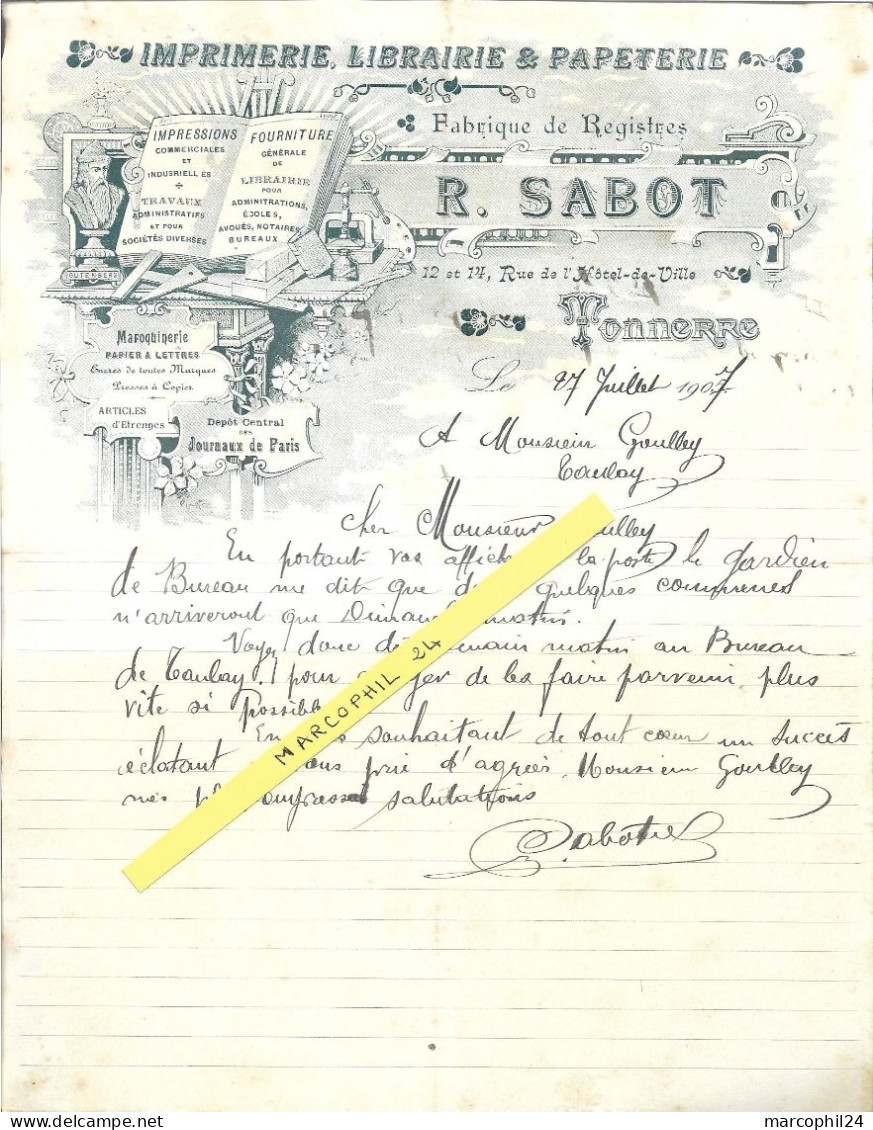 IMPRIMERIE, LIBRAIRIE & PAPETERIE
Fabrique de Registres
R. SABOT
12 et 14, Rue de l'Hôtel-de-Ville
TONNERRE
IMPRESSIONS
COMMERCIALES
ET
INDUSRIELLES
TRAVAUX
ADMINISTRATIFS
ET POUR
SOCIÉTÉS DIVERSES
FOURNITURE
GÉNÉRALE
DE
LIBRAIRIE
POUR
ADMINITRATIONS,
ÉCOLES,
AVOUÉS, NOTAIRES
BUREAUX
GUTENBERG
Maroquinerie
PAPIER A LETTRES
Encres de toutes Marques
Presses à Copier
ARTICLES
d'Etrennes
Dépôt Central
DES
Journaux de Paris
Le 27 Juillet 1907
A Monsieur Goulley
Tanlay
Cher Monsieur
En portant vos la poste le gardien
de Bureau me dit que quelques
n'arriveront que matin.
Voyez donc matin au Bureau
de Tanlay pour de les faire parvenir plus
vite si possible
En souhaitant de tout cœur un succès
éclatant prie d'agréer Monsieur Goulley
mes salutations
MARCOPHIL 24
marcophil24